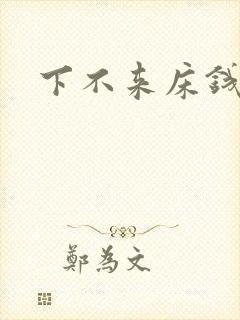 下不来床钱
鄭為文